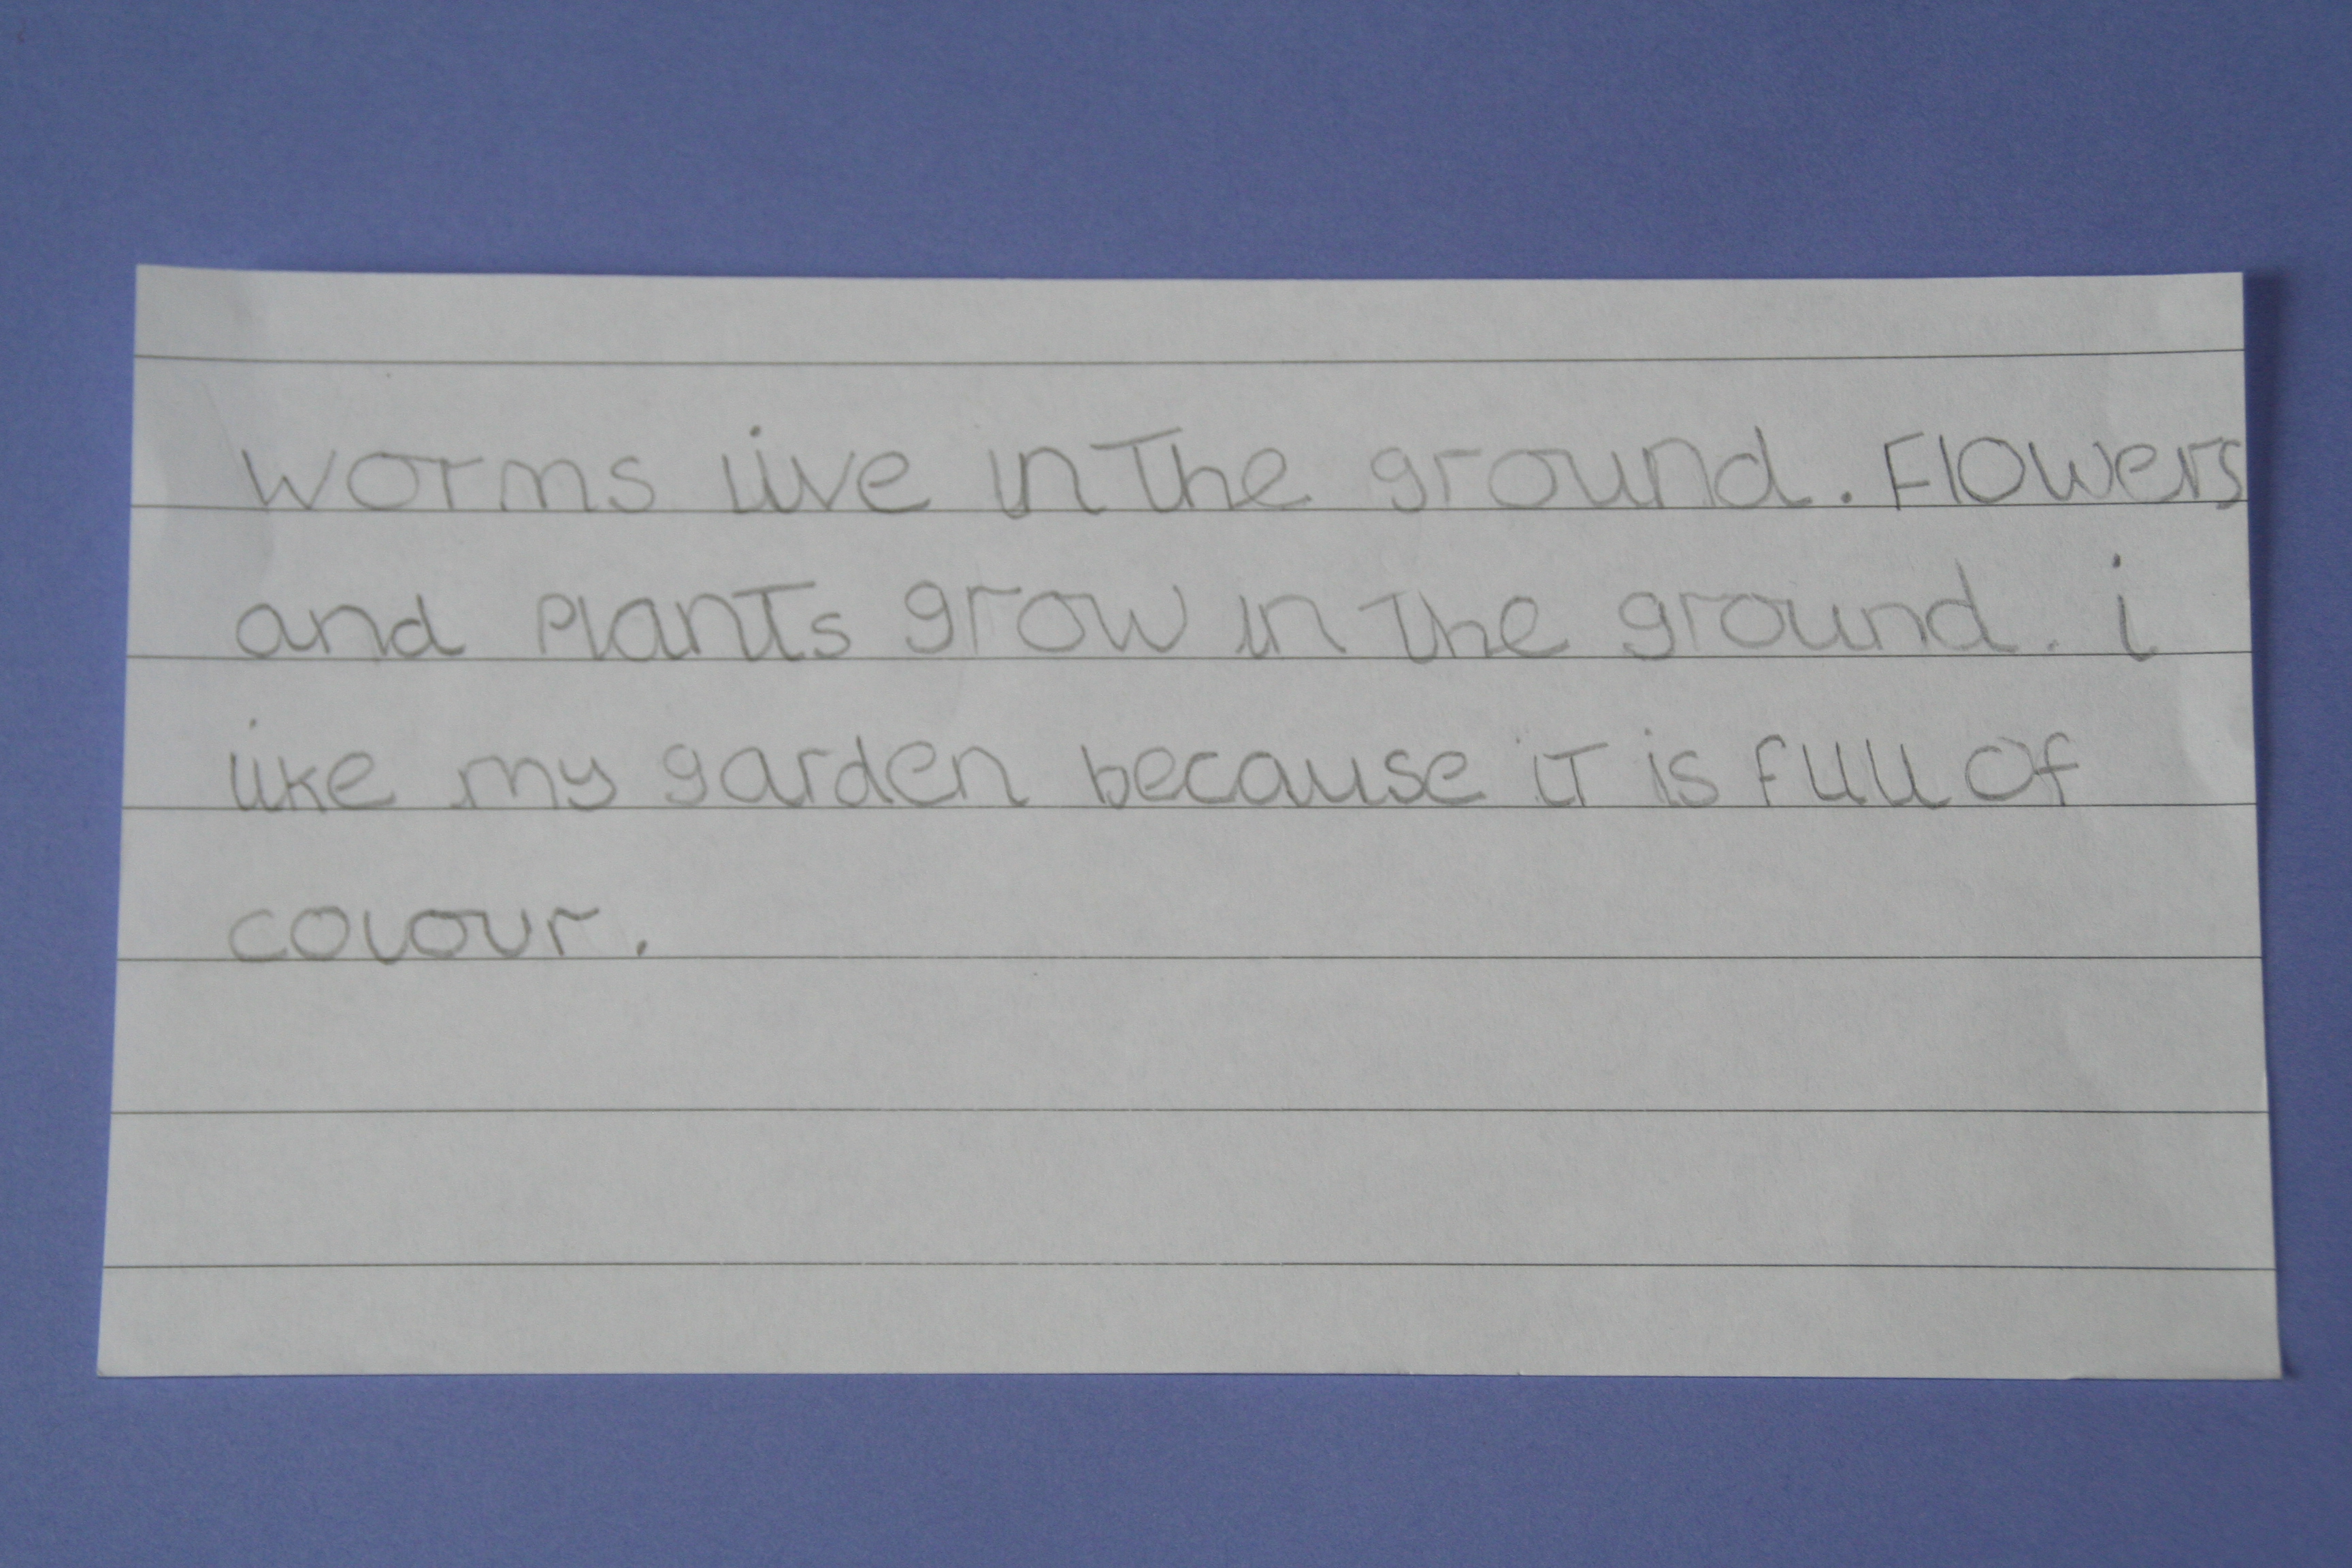 worms live in the ground. Flowers
and plants grow in the ground. i
like my garden because it is full of
colour.